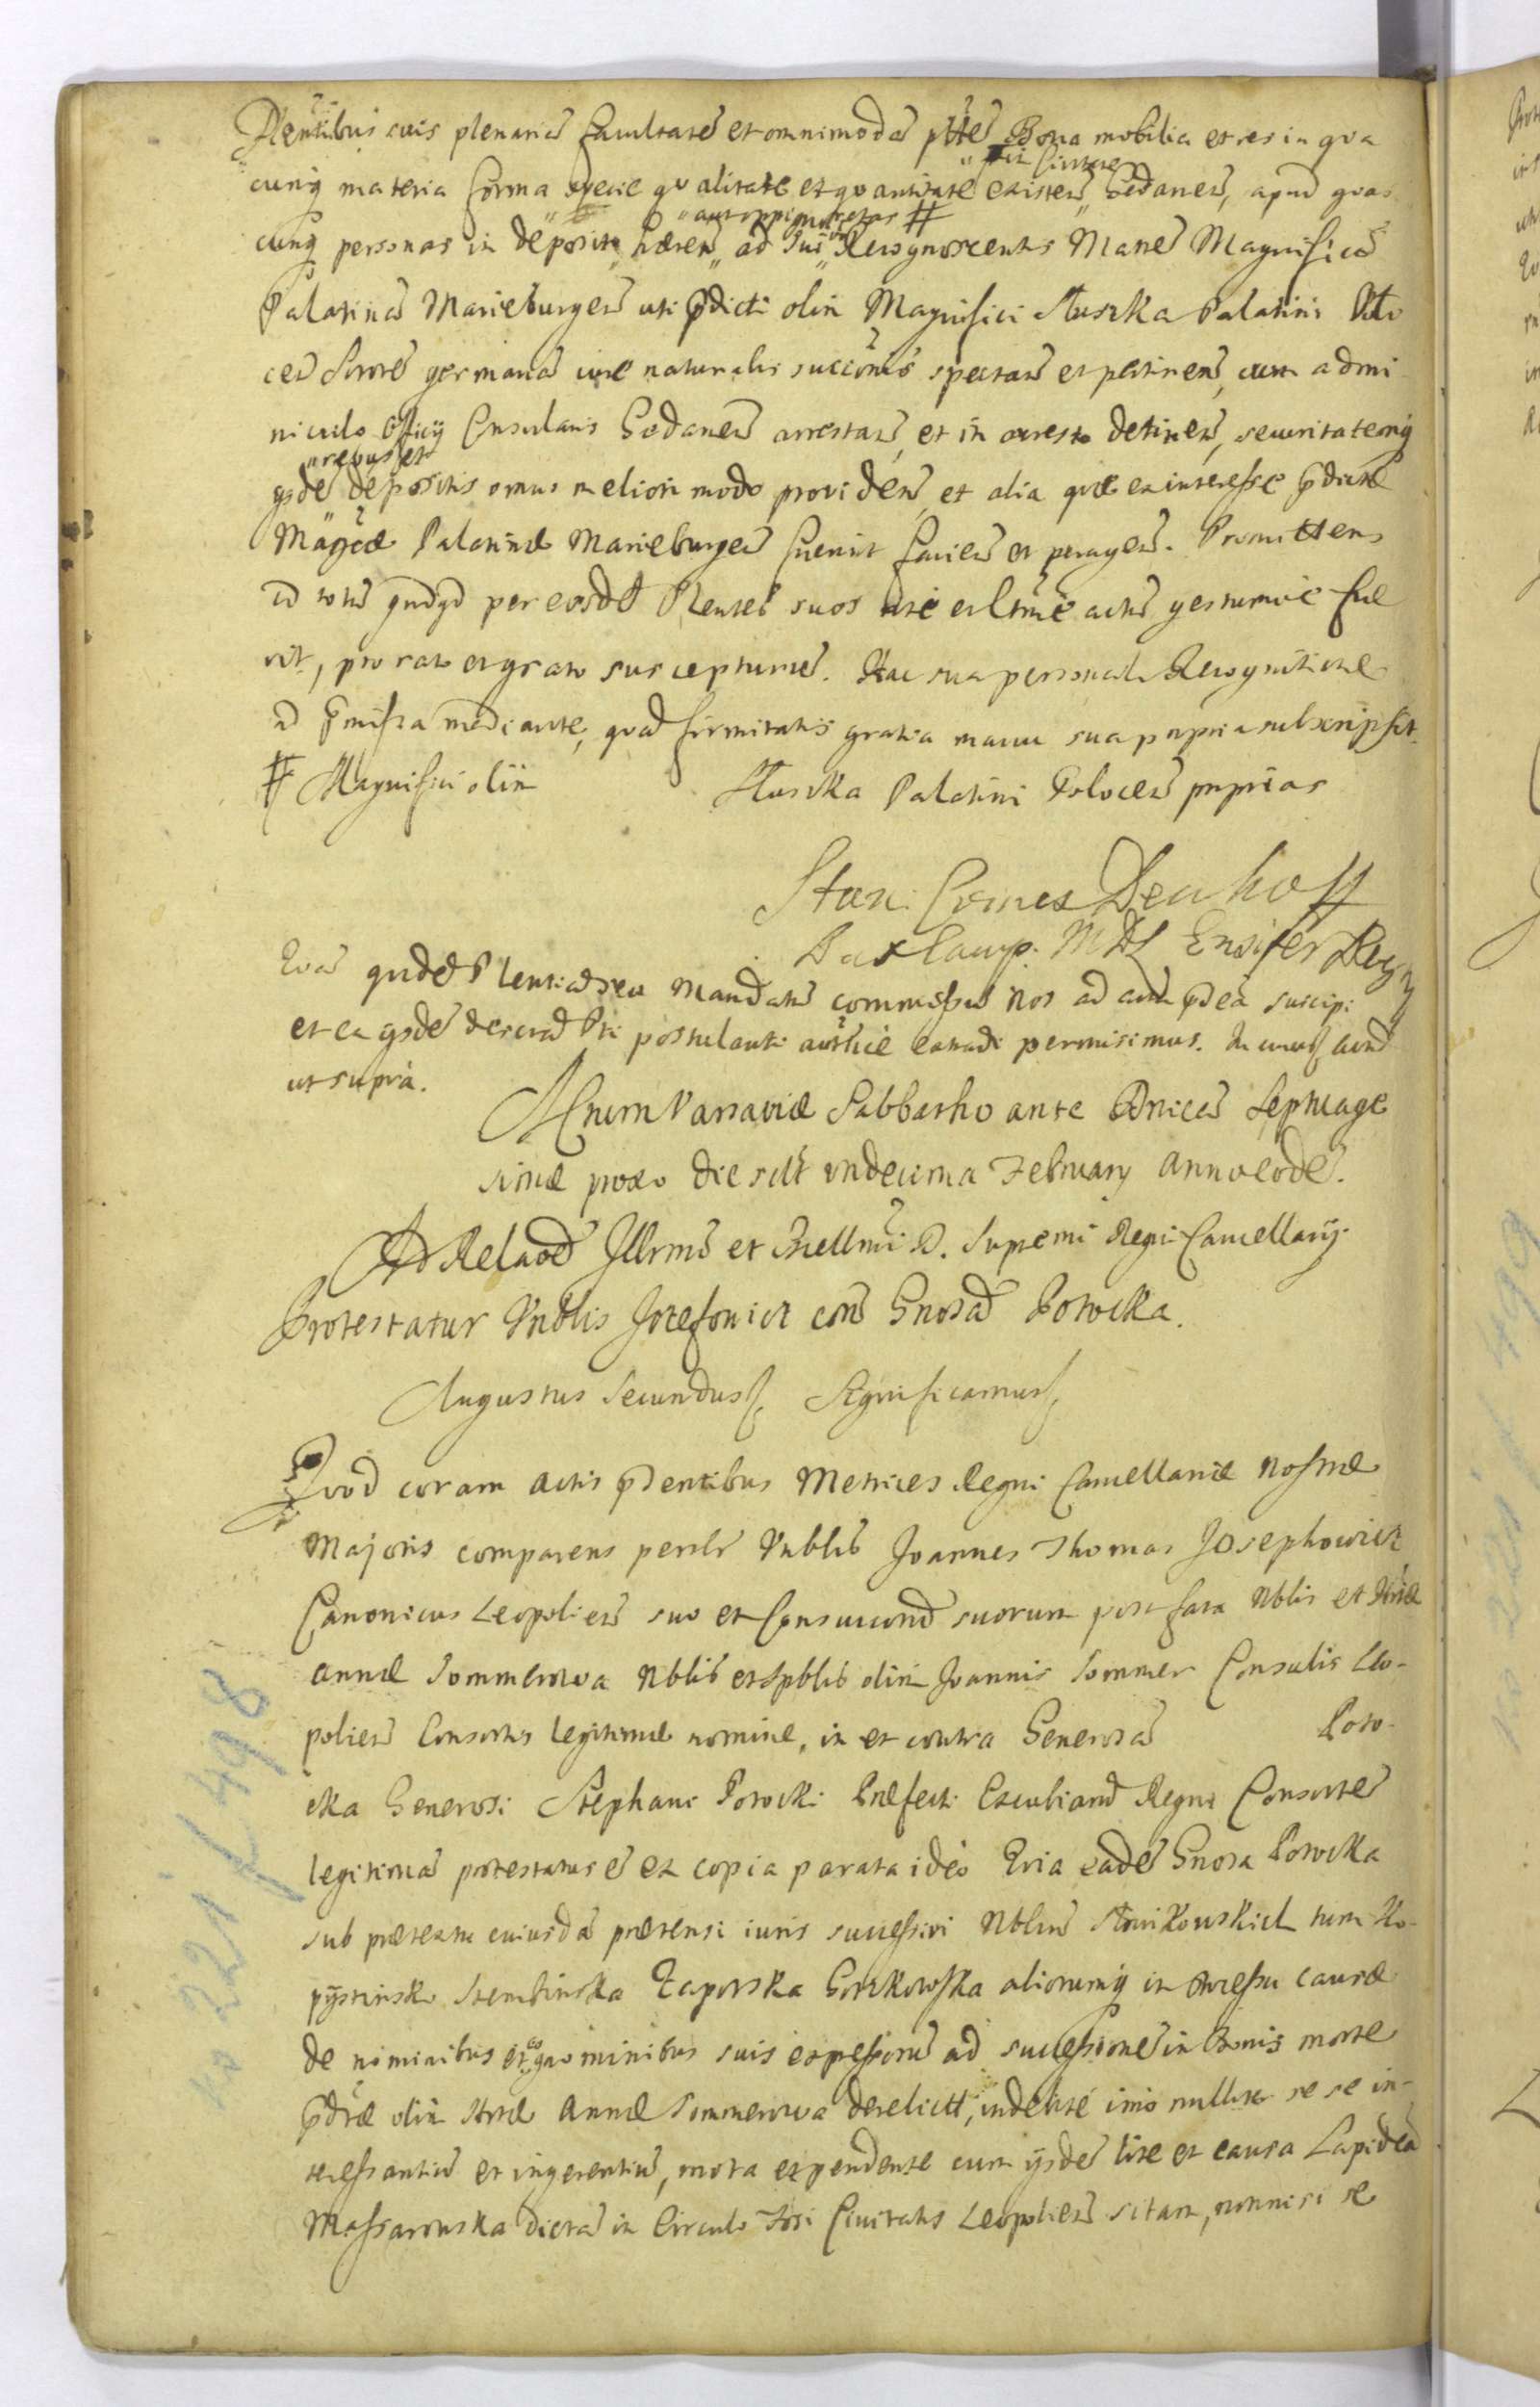 Plentibus suis plenaria facultate et omnimoda ptte Bona mobilia et res in qva
in Civitate
cunq materia forma specie qvalitate et qvantitate existen Gedanen, apud qvas
aut oppignoratas #
cunq personas in deposito haeren ad Ius Recognoscentis Mane Magnifica
Palatina Marieburgen uti pdicti olim Magnifici Sluszka Palatini Polo
cen Sorore germana iure naturalis succõnis spectan et pertinen, cum admi
niculo Officy Consularis Gedanen arrestan, et in arresto detinen, securitatemq
rebus et
ysde depositis omni meliori modo providen, et alia qvae ex interesse pdictae
Magcae Palatinae Marieburgen fuerint facien et peragen. Promittens
id totu qndqd per eosde Plentes suos rite et ltme actu gestumve fue
rit, pro rato et grato suscepturu. Hac sua personali Recognitione
ad pmissa mediante, qvad firmitatis gratia manu sua propria subscripsit.
# Magnifici olim Sluszka Palatini Polocen proprias
Stan: Comes Denhoff
Dux Camp. MDL Ensifer Regni
Qva qude Plentia seu Mandatu commissu Nos ad acta pdea suscipi
et ea ysde descrad Pti postulanti authce extradi permisimus. In cuius, actu
ut supra.
Actum Varsaviae Sabbatho ante Dnica Septuage
simae proxo die scilt undecima February anno eode.
Ad Relaoe Illrmi et Excellmi D. Supremi Regni Cancellarij.
Protestatur Vnblis Jozefowicz con Gnosa Potocka.
Augustus Secundus Significamus
Qvod coram actis pdentibus Metrices Regni Cancellariae Nostrae
Majoris comparens personlr Vnblis Joannes Thomas Josephowicz
Canonicus Leopolien suo et Consuccond suorum post fata Nblis et Hntae
annae Sommerowa Nblis et Spblis olim Joannis Sommer Consulis Leo-
polien Consortis legitimae nomine, in et contra Generosa Poto-
cka Generosi Stephani Potocki Praefecti Excubiand Regni Consorte
legitima protestatus e ex copia parata ideo Qvia eade Gnosa Potocka
sub praetextu cuiusda praetensi iuris successivi Nblium Slowikowskich tum Ko-
pystinsk Stembinska Zaporska Gorzkowska aliorumq in processu causae
de nominibus et cognominibus suis expressoru ad successione in Bonis morte
pdtae olim Hntae Annae Sommerowa derelictt, indebite imo nulliter se se in-
teressantiu et ingerentiu, mota et pendente cum ysde lite et causa Lapidea
Massarowska dicta in Circulo Fori Civitatis Leopolien sitam, nonnisi se
no 221 f 498